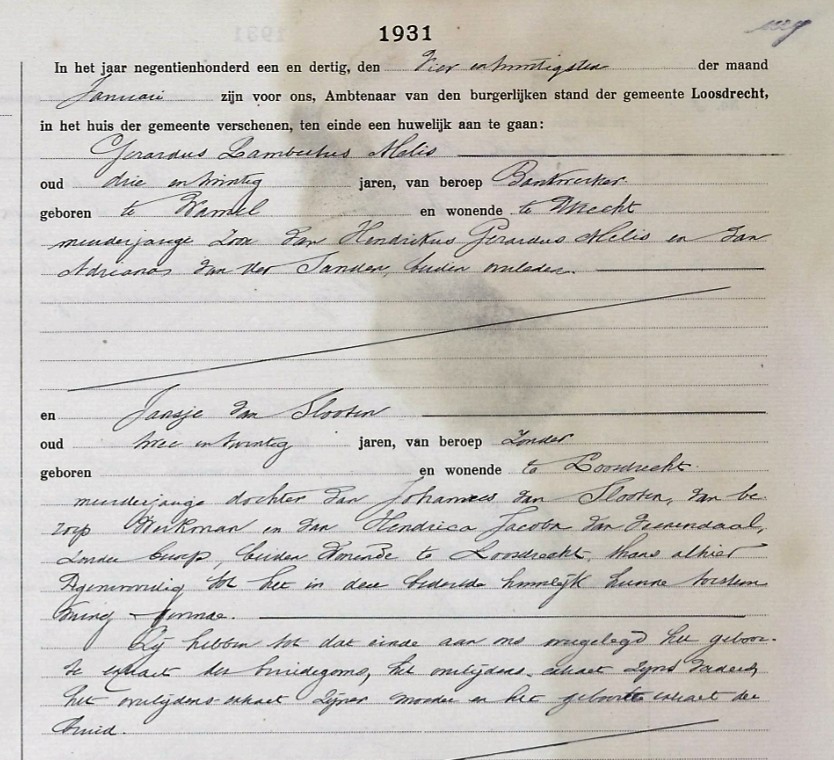 1931
In het jaar negentienhonderd een en dertig, den Vier en twintigsten der maand
Januari zijn voor ons, Ambtenaar van den burgerlijken stand der gemeente Loosdrecht,
in het huis der gemeente verschenen, ten einde een huwelijk aan te gaan:
Gerardus Lambertus Melis
oud drie en twintig jaren, van beroep Bankwerker
geboren te Wamel en wonende te Utrecht
meerderjarige zoon van Hendrikus Gerardus Melis en van
van der Sanden, beiden overleden.
en Jansje van Slooten
oud twee en twintig jaren, van beroep zonder
geboren en wonende te Loosdrecht
meerderjarige dochter van Johannes van Slooten, van be-
roep Werkman en van Hendrica Jacoba van
zonder beroep, beiden wonende te Loosdrecht, thans alhier
tegenwoordig tot het in deze bedoelde huwelijk hunne toestem
ming
Zij hebben tot dat einde aan ons overgelegd het geboor-
te extract des bruidegoms, het overlijdens-extract zijns vaders,
het overlijdens-extract zijner moeder en het geboorte extract der
bruid.